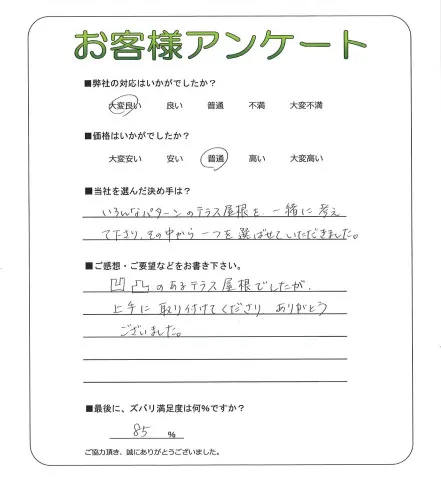 お客様アンケート
■弊社の対応はいかがでしたか？
大変良い 良い 普通 不満 大変不満
■価格はいかがでしたか？
大変安い 安い 普通 高い 大変高い
■当社を選んだ決め手は？
いろんなパターンのテラス屋根を、一緒に考え
て下さり、その中から一つを選ばせていただきました。
■ご感想・ご要望などをお書き下さい。
凹凸のあるテラス屋根でしたが、
上手に取り付けてくださり ありがとう
ございました。
■最後に、ズバリ満足度は何%ですか？
85 %
ご協力頂き、誠にありがとうございました。